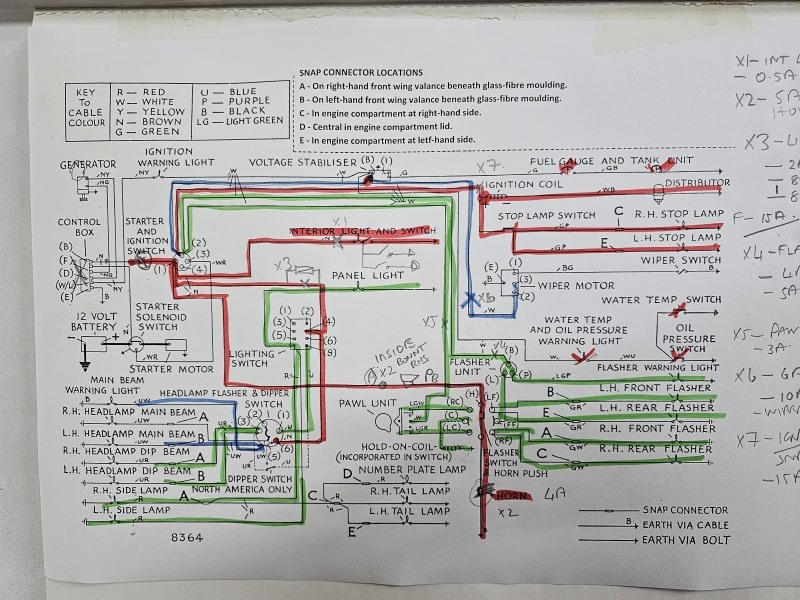 SNAP CONNECTOR LOCATIONS
A - On right-hand front wing valance beneath glass-fibre moulding.
B - On left-hand front wing valance beneath glass-fibre moulding.
C - In engine compartment at right-hand side.
D - Central in engine compartment lid.
E - In engine compartment at letf-hand side.
KEY TO CABLE COLOUR
R — RED
W — WHITE
Y — YELLOW
N — BROWN
G — GREEN
U — BLUE
P — PURPLE
B — BLACK
LG — LIGHT GREEN
GENERATOR
IGNITION WARNING LIGHT
VOLTAGE STABILISER
(B)
(1)
X7
FUEL GAUGE AND TANK UNIT
IGNITION COIL
DISTRIBUTOR
CONTROL BOX
(B)
(F)
(D)
(W/L)
(E)
STARTER AND IGNITION SWITCH
(1)
(2)
(3)
(4)
X1
INTERIOR LIGHT AND SWITCH
STOP LAMP SWITCH
C
R.H. STOP LAMP
E
L.H. STOP LAMP
WIPER SWITCH
X3
PANEL LIGHT
(E)
(3)
(2)
WIPER MOTOR
X6
WATER TEMP SWITCH
12 VOLT BATTERY
STARTER SOLENOID SWITCH
STARTER MOTOR
LIGHTING SWITCH
(1)
(2)
(3)
(4)
(5)
(6)
(8)
X5
WATER TEMP AND OIL PRESSURE WARNING LIGHT
OIL PRESSURE SWITCH
X4
FLASHER UNIT
(B)
(L)
(P)
FLASHER WARNING LIGHT
INSIDE
X2
MAIN BEAM WARNING LIGHT
HEADLAMP FLASHER & DIPPER SWITCH
R.H. HEADLAMP MAIN BEAM
L.H. HEADLAMP MAIN BEAM
R.H. HEADLAMP DIP BEAM
L.H. HEADLAMP DIP BEAM
R.H. SIDE LAMP
L.H. SIDE LAMP
DIPPER SWITCH
NORTH AMERICA ONLY
PAWL UNIT
HOLD-ON-COIL
(INCORPORATED IN SWITCH)
(RC)
(C)
(LC)
(H)
(LF)
(FF)
(RF)
L.H. FRONT FLASHER
L.H. REAR FLASHER
R.H. FRONT FLASHER
R.H. REAR FLASHER
FLASHER SWITCH & HORN PUSH
NUMBER PLATE LAMP
R.H. TAIL LAMP
L.H. TAIL LAMP
HORN
4A
X2
SNAP CONNECTOR
EARTH VIA CABLE
EARTH VIA BOLT
8364
X1 - INT
- 0.5A
X2 - 5A
X3 -
F - 15A
X4 - FLA
X5 - PAW
- 3A
X6 -
X7 - IGN
- 15A